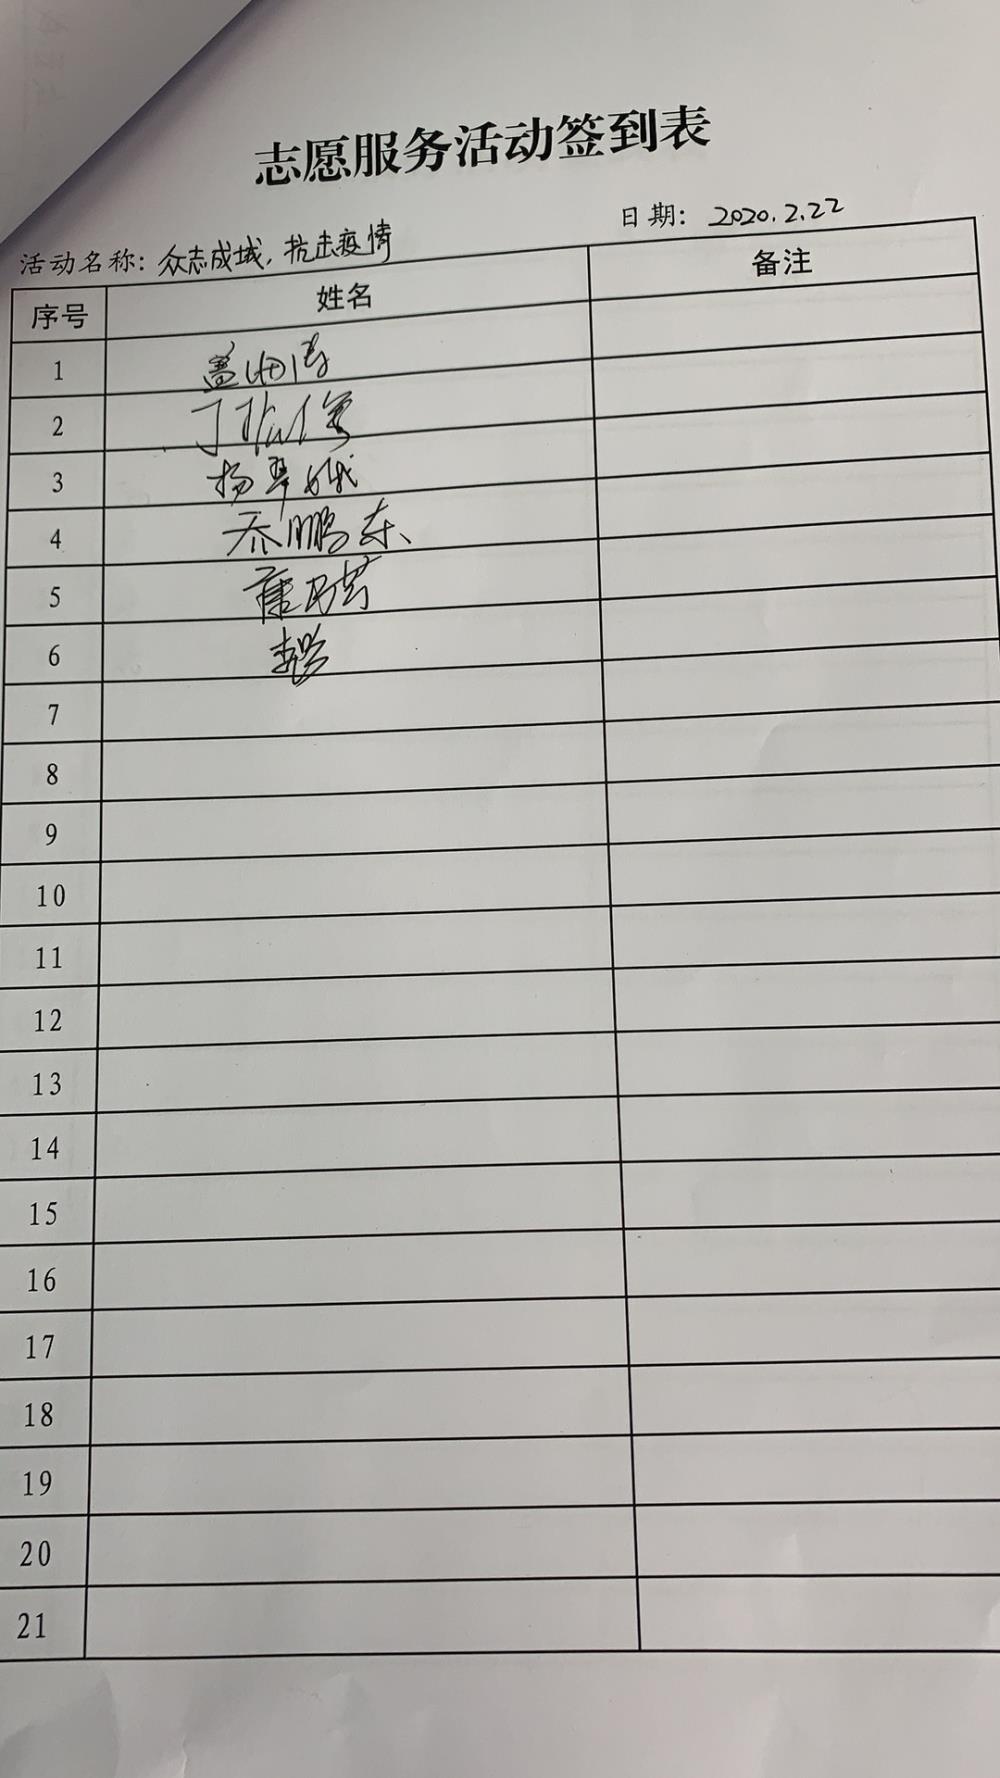 志愿服务活动签到表
活动名称：众志成城，抗击疫情 日期：2020.2.22
序号 姓名 备注
1
2 丁
3 杨翠娥
4 乔鹏东
5 康乃芳
6
7
8
9
10
11
12
13
14
15
16
17
18
19
20
21